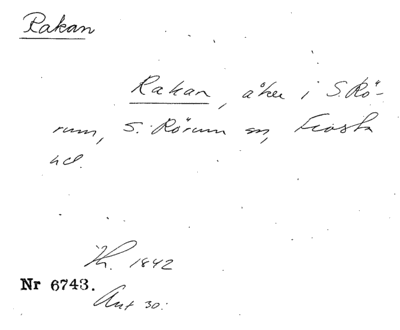 Rakan
Rakan, åker i S. Rö-
rum, S. Rörum sn, Frosta
hd.
1842
Nr 6743.
Ant 30: